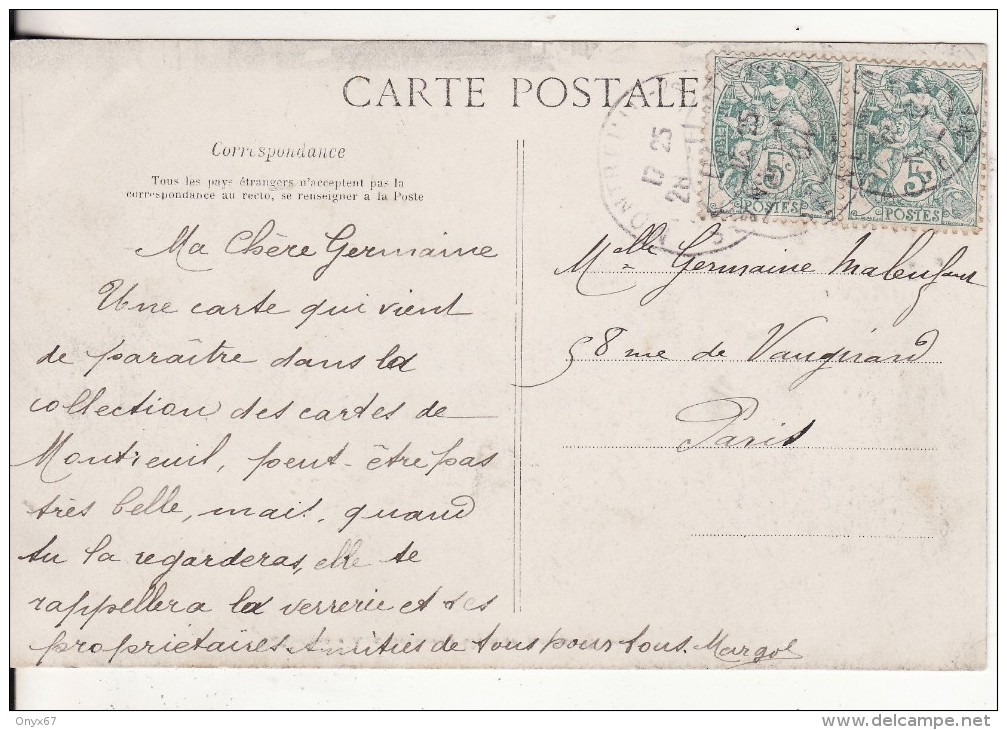 CARTE POSTALE
Correspondance
Tous les pays étrangers n'acceptent pas la
correspondance au recto, se renseigner a la Poste
5c
POSTES
5c
POSTES
17 25
28
Ma Chère Germaine
Une carte qui vient
de paraître dans la
collection des cartes de
Montreuil, peut-être pas
très belle, mais, quand
tu la regarderas, elle te
rappellera la verrerie et ses
propriétaires. Amitiés de tous pour tous. Margot
Melle Germaine Malenfant
58 rue de Vaugirard
Paris
Onyx67
delcampe.net